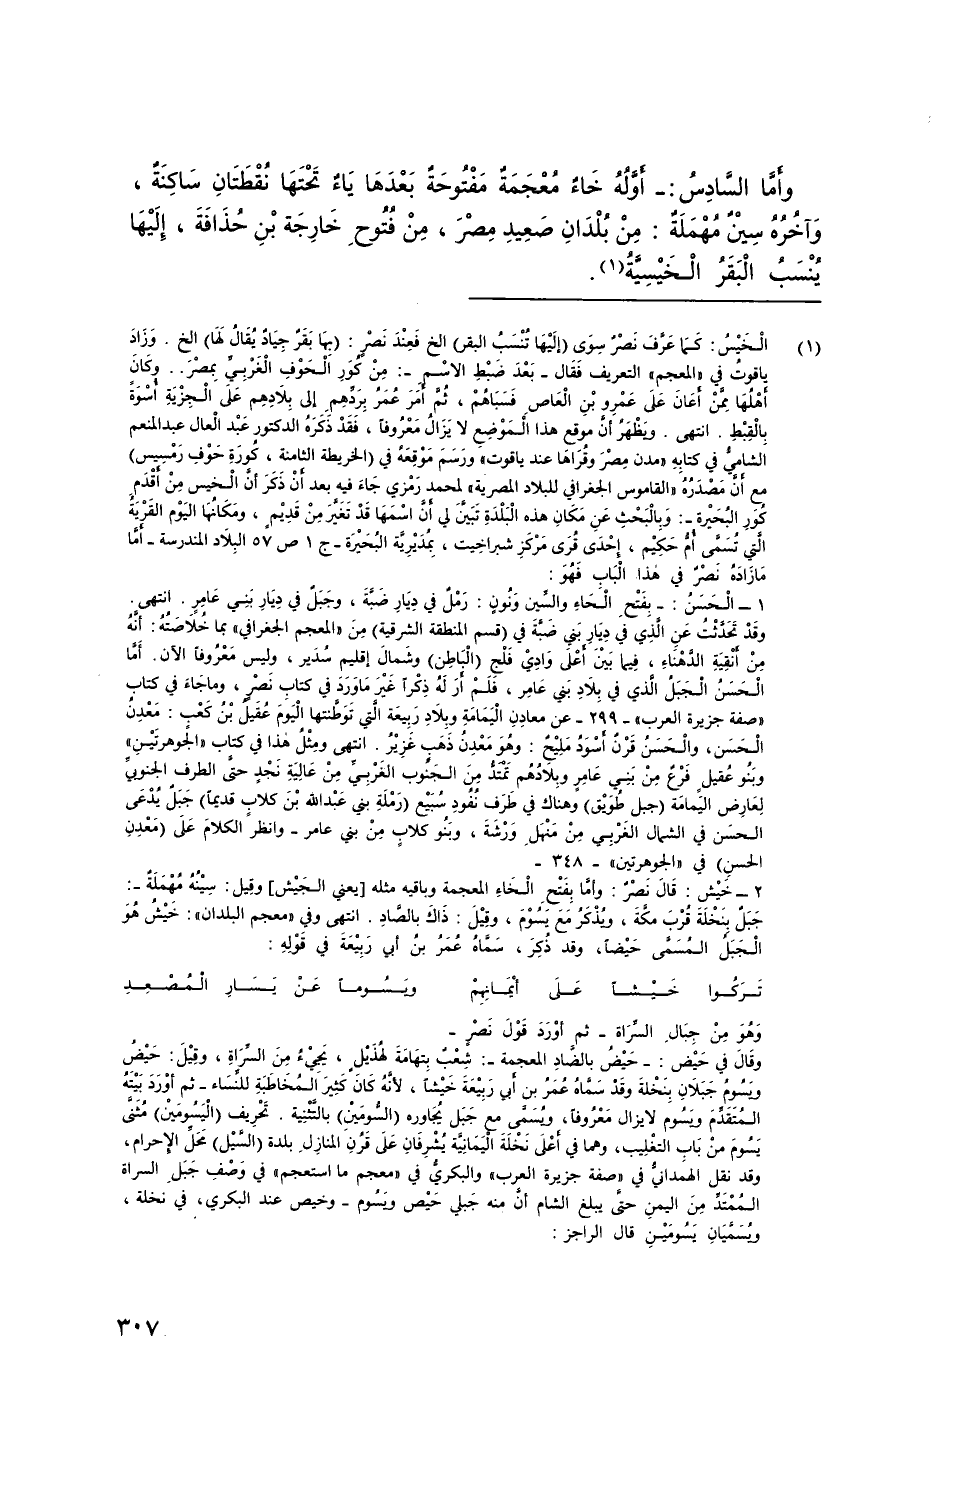 وأَمَّا السَّادِسُ :ـ أَوَّلُهُ خَاءٌ مُعْجَمَةٌ مَفْتُوحَةٌ بَعْدَهَا يَاءٌ تَحْتَهَا نُقْطَتَانِ سَاكِنَةٌ ،
وَآخُرُهُ سِيْنٌ مُهْمَلَةٌ : مِنْ بُلْدَانِ صَعِيدِ مِصْرَ ، مِنْ فُتُوحِ خَارِجَةَ بْنِ حُذَافَةَ ، إِلَيْهَا
يُنْسَبُ الْبَقَرُ الْـخَيْسِيَّةُ(١).
(١) الْـخَيْسُ: كَـمَا عَرَّفَ نَصْرٌ سِوَى (إلَيْهَا تُنْسَبُ البقر) الخ فَعِنْدَ نَصْرٍ : (بِهَا بَقَرٌ جِيَادٌ يُقَالُ لَهَا) الخ . وَزَادَ
ياقوتُ في «المعجم» التعريف فقال ـ بَعْدَ ضَبْطِ الاسْمِ ـ: مِنْ كُوَرِ الْـحَوْفِ الْغَرْبِيِّ بِمصْرَ. . وكَانَ
أَهْلُهَا مِمَّنْ أعَانَ عَلَى عَمْرِو بْنِ الْعَاصِ فَسَبَاهُمْ ، ثُمَّ أمَرَ عُمَرُ بِرَدِّهِم إلى بِلادِهِم عَلَى الْـجِزْيَةِ أُسْوَةً
بِالْقِبْطِ . انتهى . ويَظْهَرُ أنَّ موقع هذا الْـمَوْضِعِ لا يَزَالُ مَعْرُوفاً ، فَقَدْ ذَكَرَهُ الدكتور عَبْد العال عبدالمنعم
الشاميُّ في كتابِهِ «مدن مِصْرَ وقُرَاهَا عند ياقوت» ورَسَمَ مَوْقِعَهُ في (الخريطة الثامنة ، كُورَة حَوْفِ رَمْسِيس)
مع أنَّ مَصْدَرُهُ «القاموس الجغرافي للبلاد المصرية» لمحمد رَمْزي جَاءَ فيه بعد أنْ ذَكَرَ أنَّ الْـخيس مِنْ أَقْدَمِ
كُوَرِ البُحَيْرة ـ: وَبِالْبَحْثِ عَنِ مَكَانِ هذه الْبَلْدَةِ تَبَيَّنَ لي أنَّ اسْمَهَا قَدْ تَغَيَّرَ مِنْ قَدِيْمٍ ، ومَكَانُها اليَوْمَ القَرْيَةُ
الَّتي تُسَمَّى أُمُّ حَكِيْم ، إحْدَى قُرَى مَرْكَزِ شبراخيت ، بِمُدِيْرِيَّة البُحَيْرَة ـ ج ١ ص ٥٧ البِلادُ المندرسة ـ أمَّا
مَازَادَهُ نَصْرٌ في هٰذا الْبَابِ فَهُوَ :
١ ـ الْـحَسَنُ : ـ بِفَتْحِ الْـحَاءِ والسِّيْن وَنُونٍ : رَمْلٌ في دِيَارِ ضَبَّةَ ، وجَبَلٌ في دِيَارِ بَنِـي عَامِرٍ . انتهى .
وقَدْ تَحَدَّثْتُ عَنِ الَّذِي في دِيَارِ بَني ضَبَّةَ في (قسم المنطقة الشرقية) مِنَ «المعجم الجغرافي» بما خُلاَصَتُهُ: أنَّهُ
مِنْ أَنْقِيَةِ الدَّهْنَاءِ ، فِيمَا بَيْنَ أعْلَى وَادِيْ فَلْجٍ (الْبَاطِن) وشَمال إقليم سُدَيْر ، وليس مَعْرُوفاً الآن. أَمَّا
الْـحَسَنُ الْـجَبَلُ الَّذي في بِلاَدِ بَنِي عامِرٍ ، فَلَمْ أَرَ لَهُ ذِكْراً غَيْرَ مَاوَرَدَ في كتابِ نَصْرٍ ، وماجَاءَ في كتاب
«صفة جزيرة العرب» ـ ٢٩٩ ـ عن معادِنِ الْيَمَامَةِ وبِلادِ رَبِيعَةَ الَّتي تَوَطَّنتها الْيَوْمَ عُقَيلُ بْنُ كَعْبٍ : مَعْدِنُ
الْـحَسَنِ، والْـحَسَنُ قَرْنٌ أسْوَدُ مَلِيْحٌ : وهُوَ مَعْدِنُ ذَهَبٍ غَزِيْرٌ . انتهى ومِثْلُ هٰذا في كتاب «الجوهرتَيْـن»
وبَنُو عُقيلٍ فَرْعٌ مِنْ بَنِـي عامِرٍ وبِلادُهُم تَمْتَدُّ مِنَ الْـجَنُوب الغَرْبِـيِّ مِنْ عَالِيَةِ نَجْدٍ حتَّى الطرف الجنوبيِّ
لِعَارِضِ اليَمَامَة (جبل طُوَيْق) وهناك في طَرَف نُفُودِ سُبَيْعٍ (رَمْلَةِ بني عَبْدالله بْنَ كلابٍ قديماً) جَبَلٌ يُدْعَى
الْـحسَن في الشمال الغَرْبِـي مِنْ مَنْهَلِ وَرْشَةَ ، وبَنُو كلابٍ مِنْ بني عامر ـ وانظر الكلامَ عَلَى (مَعْدِنِ
الحسن) في «الجوهرتين» ـ ٣٤٨ ـ
٢ ـ خَيْش : قَالَ نَصْرٌ : وأمَّا بِفَتْحِ الْـخَاءِ المعجمة وباقيه مثله [يعني الْـجَيْش] وقيل: سِيْنُهُ مُهْمَلَةٌ ـ:
جَبَلٌ بِنَخْلَةَ قُرْبَ مكَّةَ ، ويُذْكَرُ مَعَ يَسُوْمَ ، وقِيْلَ : ذَاكَ بالصَّادِ . انتهى وفي «معجم البلدان»: خَيْشٌ هُوَ
الْـجَبَلُ الـمُسَمَّى خَيْضاً، وقد ذُكِرَ ، سَمَّاهُ عُمَرُ بنُ أبي رَبِيْعَةَ في قَوْلِهِ :
تَـرَكُـوا خَـيْـشـاً عَـلَـى أَيْمَـانِهِمْ ويَـسُـومـاً عَـنْ يَـسَـارِ الْـمُـصْـعِـدِ
وَهُوَ مِنْ جِبَالِ السَّرَاة ـ ثم أوْرَدَ قَوْلَ نَصْرٍ ـ
وقَالَ في خَيْض : ـ خَيْضُ بالضَّادِ المعجمة ـ: شِعْبٌ بِتهَامَةَ لِهُذَيْلٍ ، يَجِيْءُ مِنَ السَّرَاةِ ، وقِيْلَ: خَيْضُ
ويَسُومُ جَبَلانِ بِنَخْلَةَ وقَدْ سَمَّاهُ عُمَرُ بن أبي رَبِيْعَةَ خَيْشاً ، لأنَّهُ كَانَ كَثِيْرَ الْـمُخَاطَبَةِ لِلنِّساء ـ ثم أوْرَدَ بَيْتَهُ
الـمُتَقَدِّمَ ويَسُوم لايزال مَعْرُوفاً، ويُسَمَّى مع جَبَلٍ يُجَاوره (السُّومَيْنِ) بِالتَّثْنِية . تَحْرِيف (الْيَسُومَيْنِ) مُثَنَّى
يَسُومَ مِنْ بابِ التغلِيب، وهما في أعْلَى نَخْلَةَ الْيَمَانِيَّةِ يُشْرِفَانِ عَلَى قَرْنِ المنازِلِ بلدة (السَّيْلِ) مَحَلِّ الإحرام،
وقد نقل الهمدانيُّ في «صفة جزيرة العرب» والبكريُّ في «معجم ما استعجم» في وَصْفِ جَبَلِ السراة
الـمُمْتَدِّ مِنَ اليمنِ حتَّى يبلغ الشام أنَّ منه جَبلي خَيْص ويَسُوم ـ وخيص عند البكري، في نخلة ،
ويُسَمَّيَانِ يَسُومَيْـنِ قال الراجز :
٣٠٧